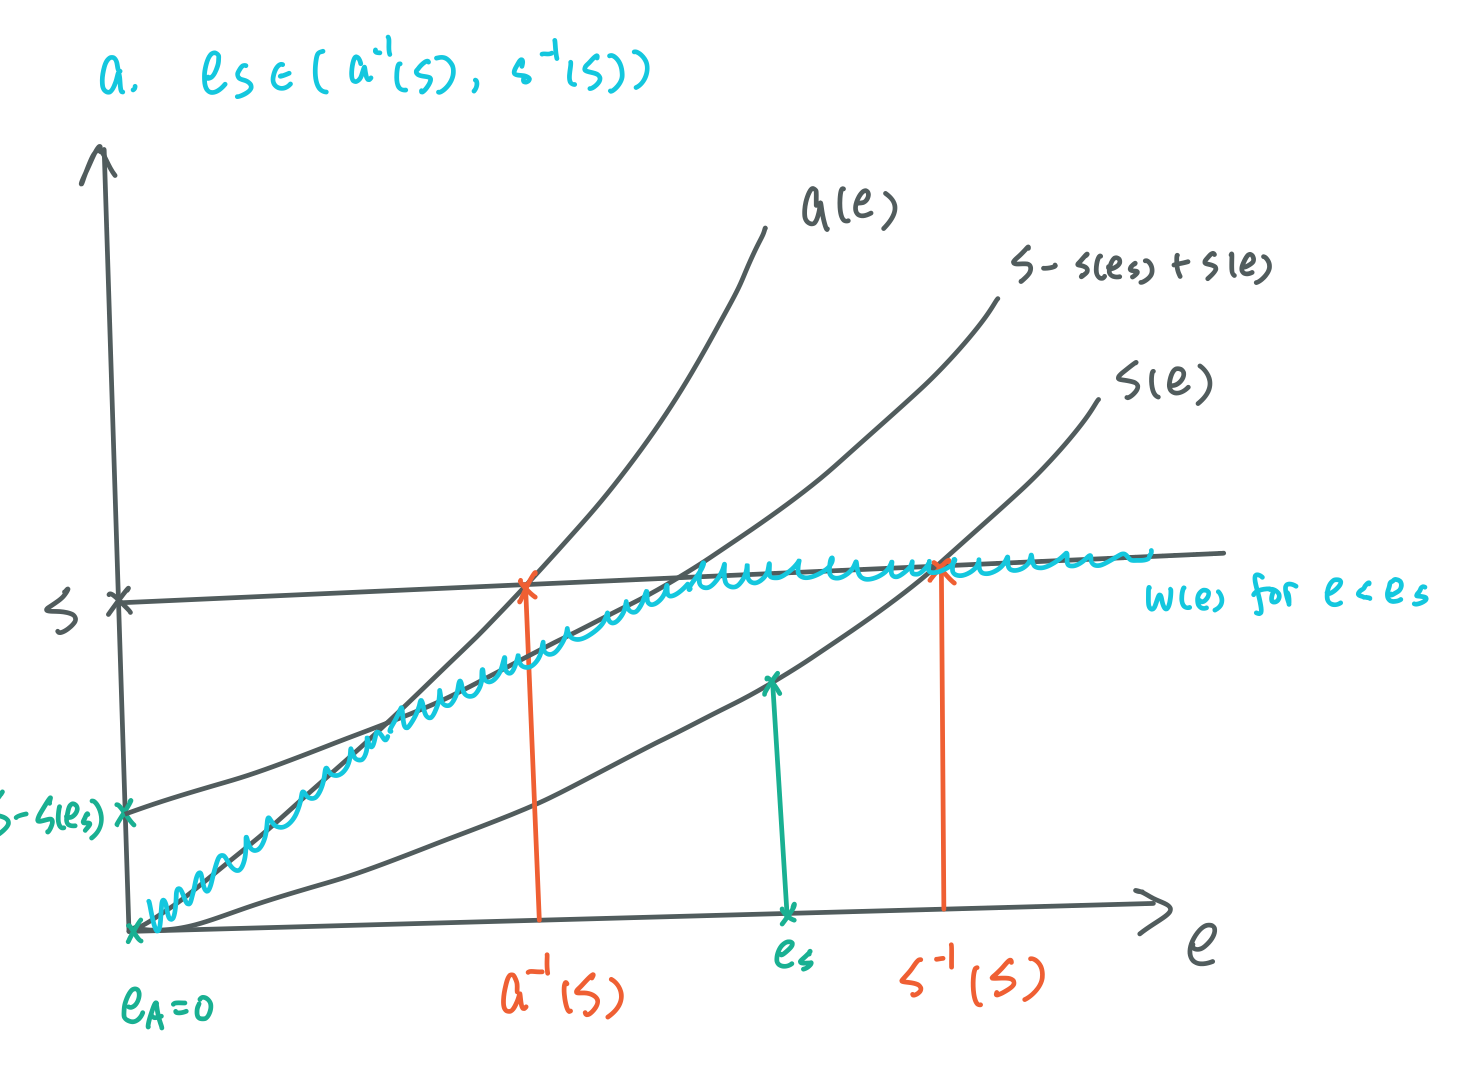 a. es ∈ (a⁻¹(S), s⁻¹(S))
a(e)
S - s(es) + s(e)
s(e)
S
w(e) for e < es
S - s(es)
es
e
eA = 0
a⁻¹(S)
s⁻¹(S)